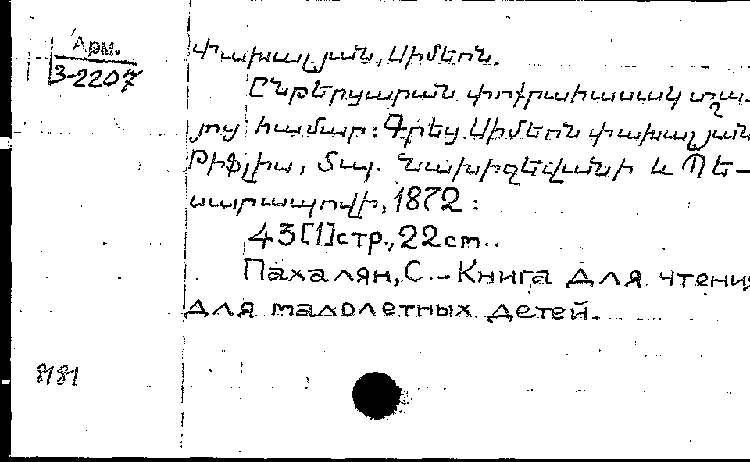 Арм.
3-2207
Փախալյան, Սիմէոն.
Ընթերցարան փոքրահասակ տղա-
յոց համար: Գրեց Սիմէոն Փախալյան
Թիֆլիս, տպ. Նախիջեվանի և Պ է-
տարապովի, 1872:
43[1]стр., 22cm.
Пахалян, С. - Книга для чтения
для малолетных детей.
8181